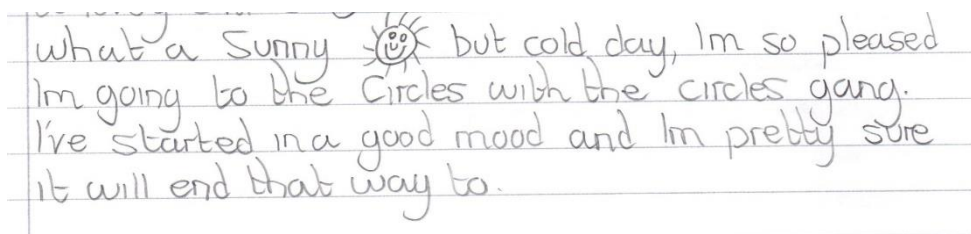 what a Sunny but cold day, Im so pleased
Im going to the Circles with the circles gang.
I've started in a good mood and Im pretty sure
it will end that way to.